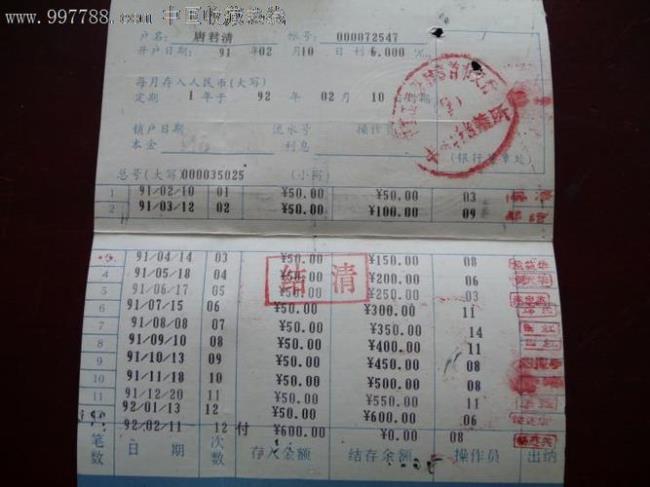 www.997788.com 中国收藏热线
户名: 唐君清 帐号: 000072547
开户日期: 91 年 02 月 10 日 利 6.000 ‰
每月存入人民币(大写)
定期 1 年于 92 年 02 月 10 日到期
销户日期 流水号 操作员
本金 利息 (银行签章处)
总号(大写)000035025 (小写)
1 91/02/10 01 ¥50.00 ¥50.00 03
2 91/03/12 02 ¥50.00 ¥100.00 09
91/04/14 03 ¥50.00 ¥150.00 08
4 91/05/18 04 ¥50.00 ¥200.00 06
5 91/06/17 05 ¥50.00 ¥250.00 03
6 91/07/15 06 ¥50.00 ¥300.00 11
7 91/08/08 07 ¥50.00 ¥350.00 14
8 91/09/10 08 ¥50.00 ¥400.00 11
9 91/10/13 09 ¥50.00 ¥450.00 08
10 91/11/18 10 ¥50.00 ¥500.00 08
11 91/12/20 11 ¥50.00 ¥550.00 11
92/01/13 12 ¥50.00 ¥600.00 06
92/02/11 12 付 ¥600.00 ¥0.00 08
笔数 日期 次数 存入金额 结存余额 操作员 出纳
结清